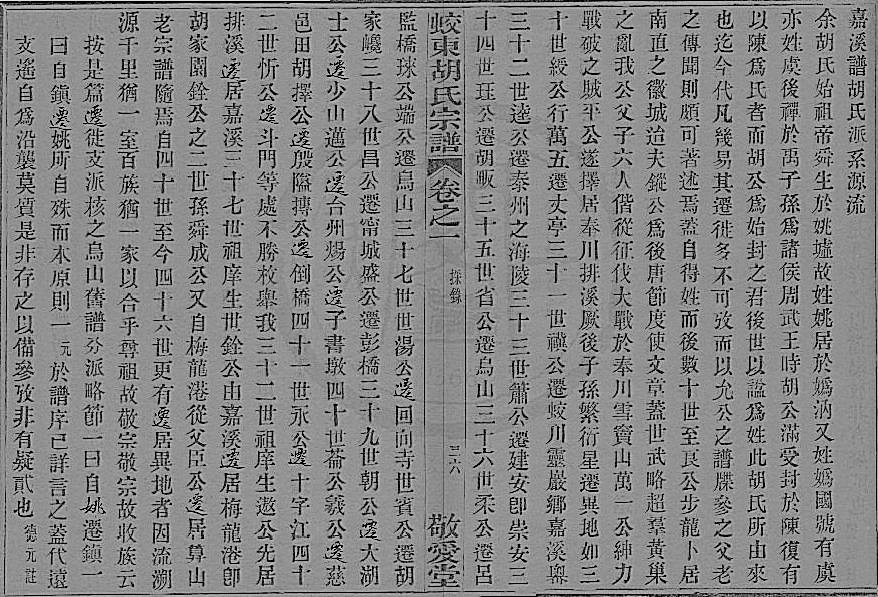 嘉溪譜胡氏派系源流
余胡氏始祖帝舜生於姚墟故姓姚居於嬀汭又姓嬀國號有虞
亦姓虞後禪於禹子孫爲諸侯周武王時胡公滿受封於陳復有
以陳爲氏者而胡公爲始封之君後世以諡爲姓此胡氏所由來
也迄今代凡幾易其遷徙多不可攷而以允公之譜牒參之父老
之傳聞則頗可著述焉蓋自得姓而後數十世至良公步龍卜居
南直之徽城迨夫鏦公爲後唐節度使文章蓋世武略超羣黃巢
之亂我公父子六人偕從征伐大戰於奉川雪竇山萬一公紳力
戰破之賊平公遂擇居奉川排溪厥後子孫繁衍星遷異地如三
十世綬公行萬五遷丈亭三十一世穓公遷蛟川靈巖鄉嘉溪嶴
三十二世逵公遷泰州之海陵三十三世簫公遷建安卽崇安三
十四世珏公遷胡畈三十五世省公遷烏山三十六世柔公遷呂
蛟東胡氏宗譜
卷之一
採錄
三六
敬愛堂
監橋球公端公遷烏山三十七世世湯公遷回向寺世賓公遷胡
家巉三十八世昌公遷甯城盛公遷彭橋三十九世朝公遷大湖
士公遷少山邁公遷台州煬公遷子書墩四十世菕公羲公遷慈
邑田胡擇公遷隑隘摶公遷倒橋四十一世永公遷十字江四十
二世忻公遷斗門等處不勝枚舉我三十二世祖庠生遨公先居
排溪遷居嘉溪三十七世祖庠生世銓公由嘉溪遷居梅龍港卽
胡家園銓公之二世孫舜成公又自梅龍港從父臣公遷居算山
老宗譜隨焉自四十世至今四十六世更有遷居異地者因流溯
源千里猶一室百族猶一家以合乎尊祖故敬宗敬宗故收族云
按是篇遷徙支派核之烏山舊譜分派略節一曰自姚遷鎮一
曰自鎮遷姚所自殊而本原則一元於譜序已詳言之蓋代遠
支遙自爲沿襲莫質是非存之以備參攷非有疑貳也 德元註